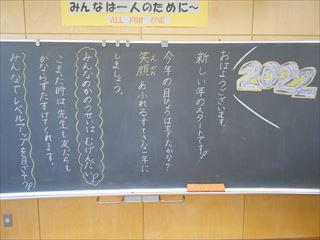 みんなは一人のために～
ALL FOR ONE
2022
おはようございます。
新しい年のスタートです!
今年の目ひょうは立てたかな?
笑顔あふれるすてきな一年に
えがお
しましょう。
みんなのかのうせいはむげんだい!
こまた時は先生も友だちも
かならずたすけてくれます。
みんなでレベルアップを目ざそう!